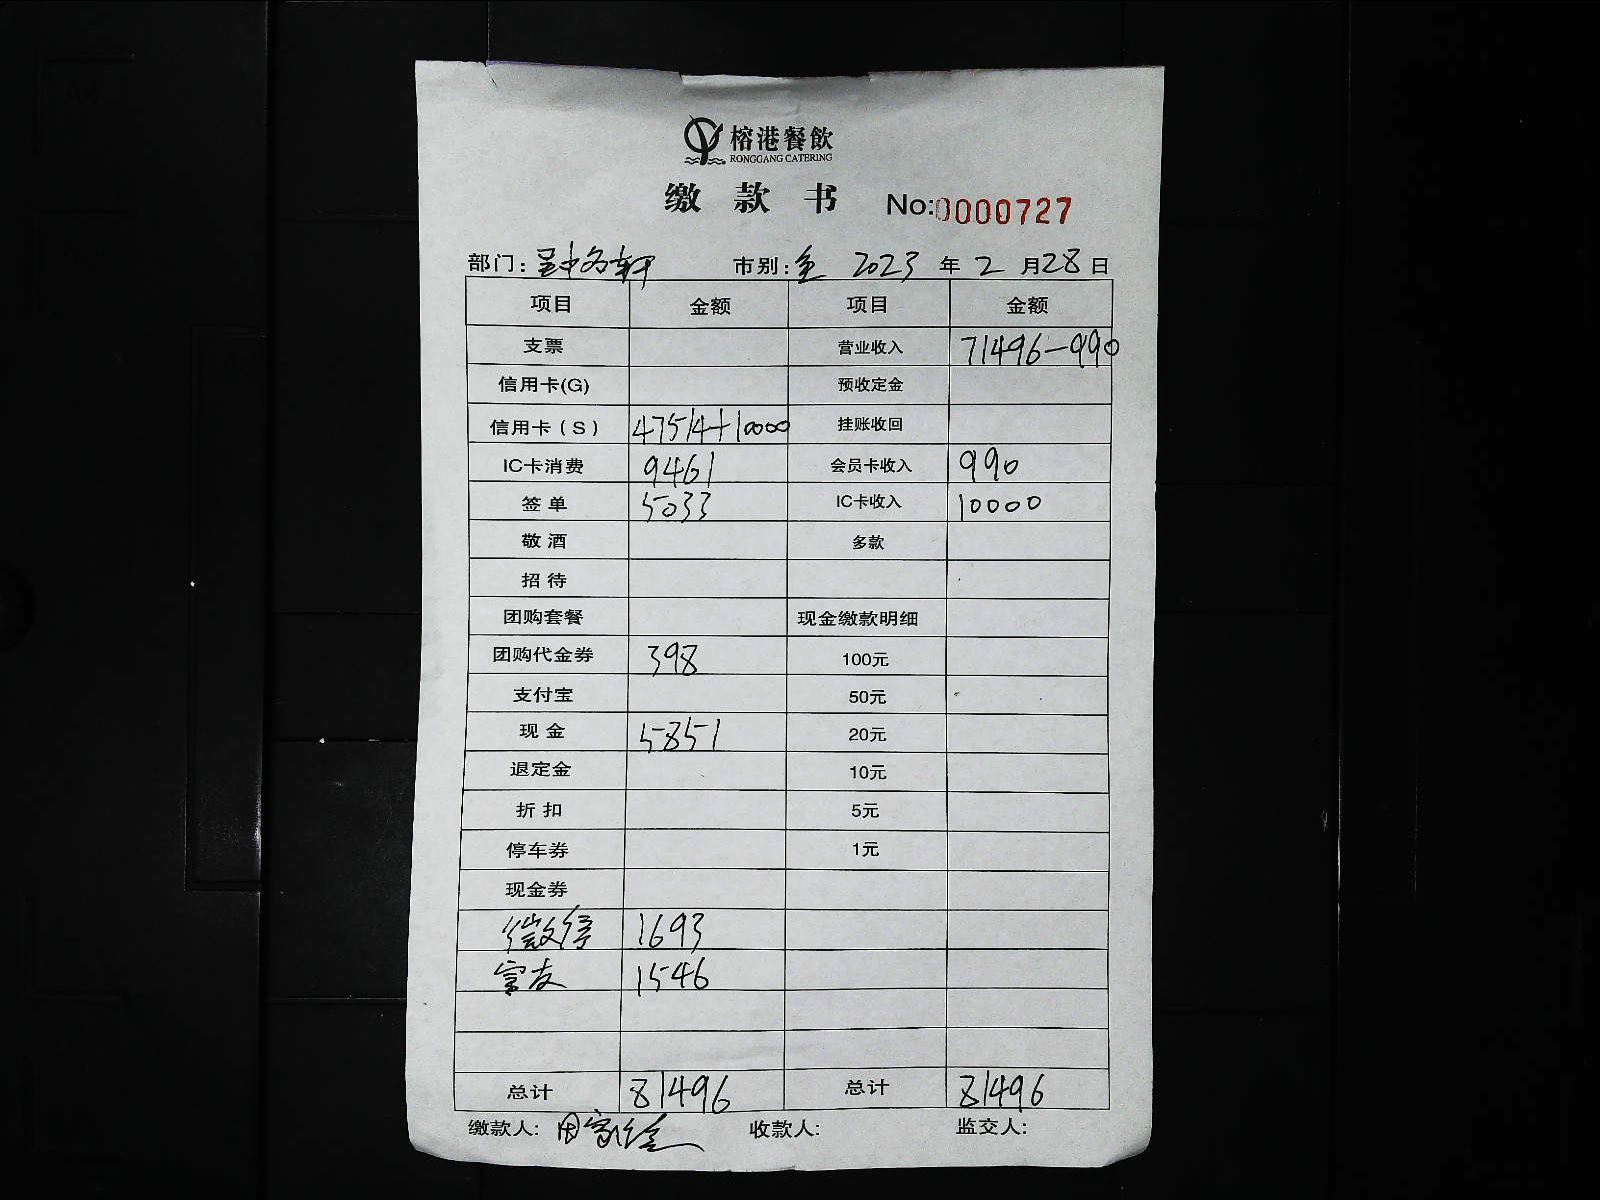 榕港餐飲
RONGGANG CATERING
缴 款 书 No:0000727
部门: 市别:全 2023 年 2 月 28 日
项目 金额 项目 金额
支票 营业收入 71496-990
信用卡(G) 预收定金
信用卡(S) 47514+10000 挂账收回
IC卡消费 9461 会员卡收入 990
签单 5033 IC卡收入 10000
敬酒 多款
招待
团购套餐 现金缴款明细
团购代金券 398 100元
支付宝 50元
现金 5851 20元
退定金 10元
折扣 5元
停车券 1元
现金券
微信 1693
1546
总计 81496 总计 81496
缴款人: 收款人: 监交人: